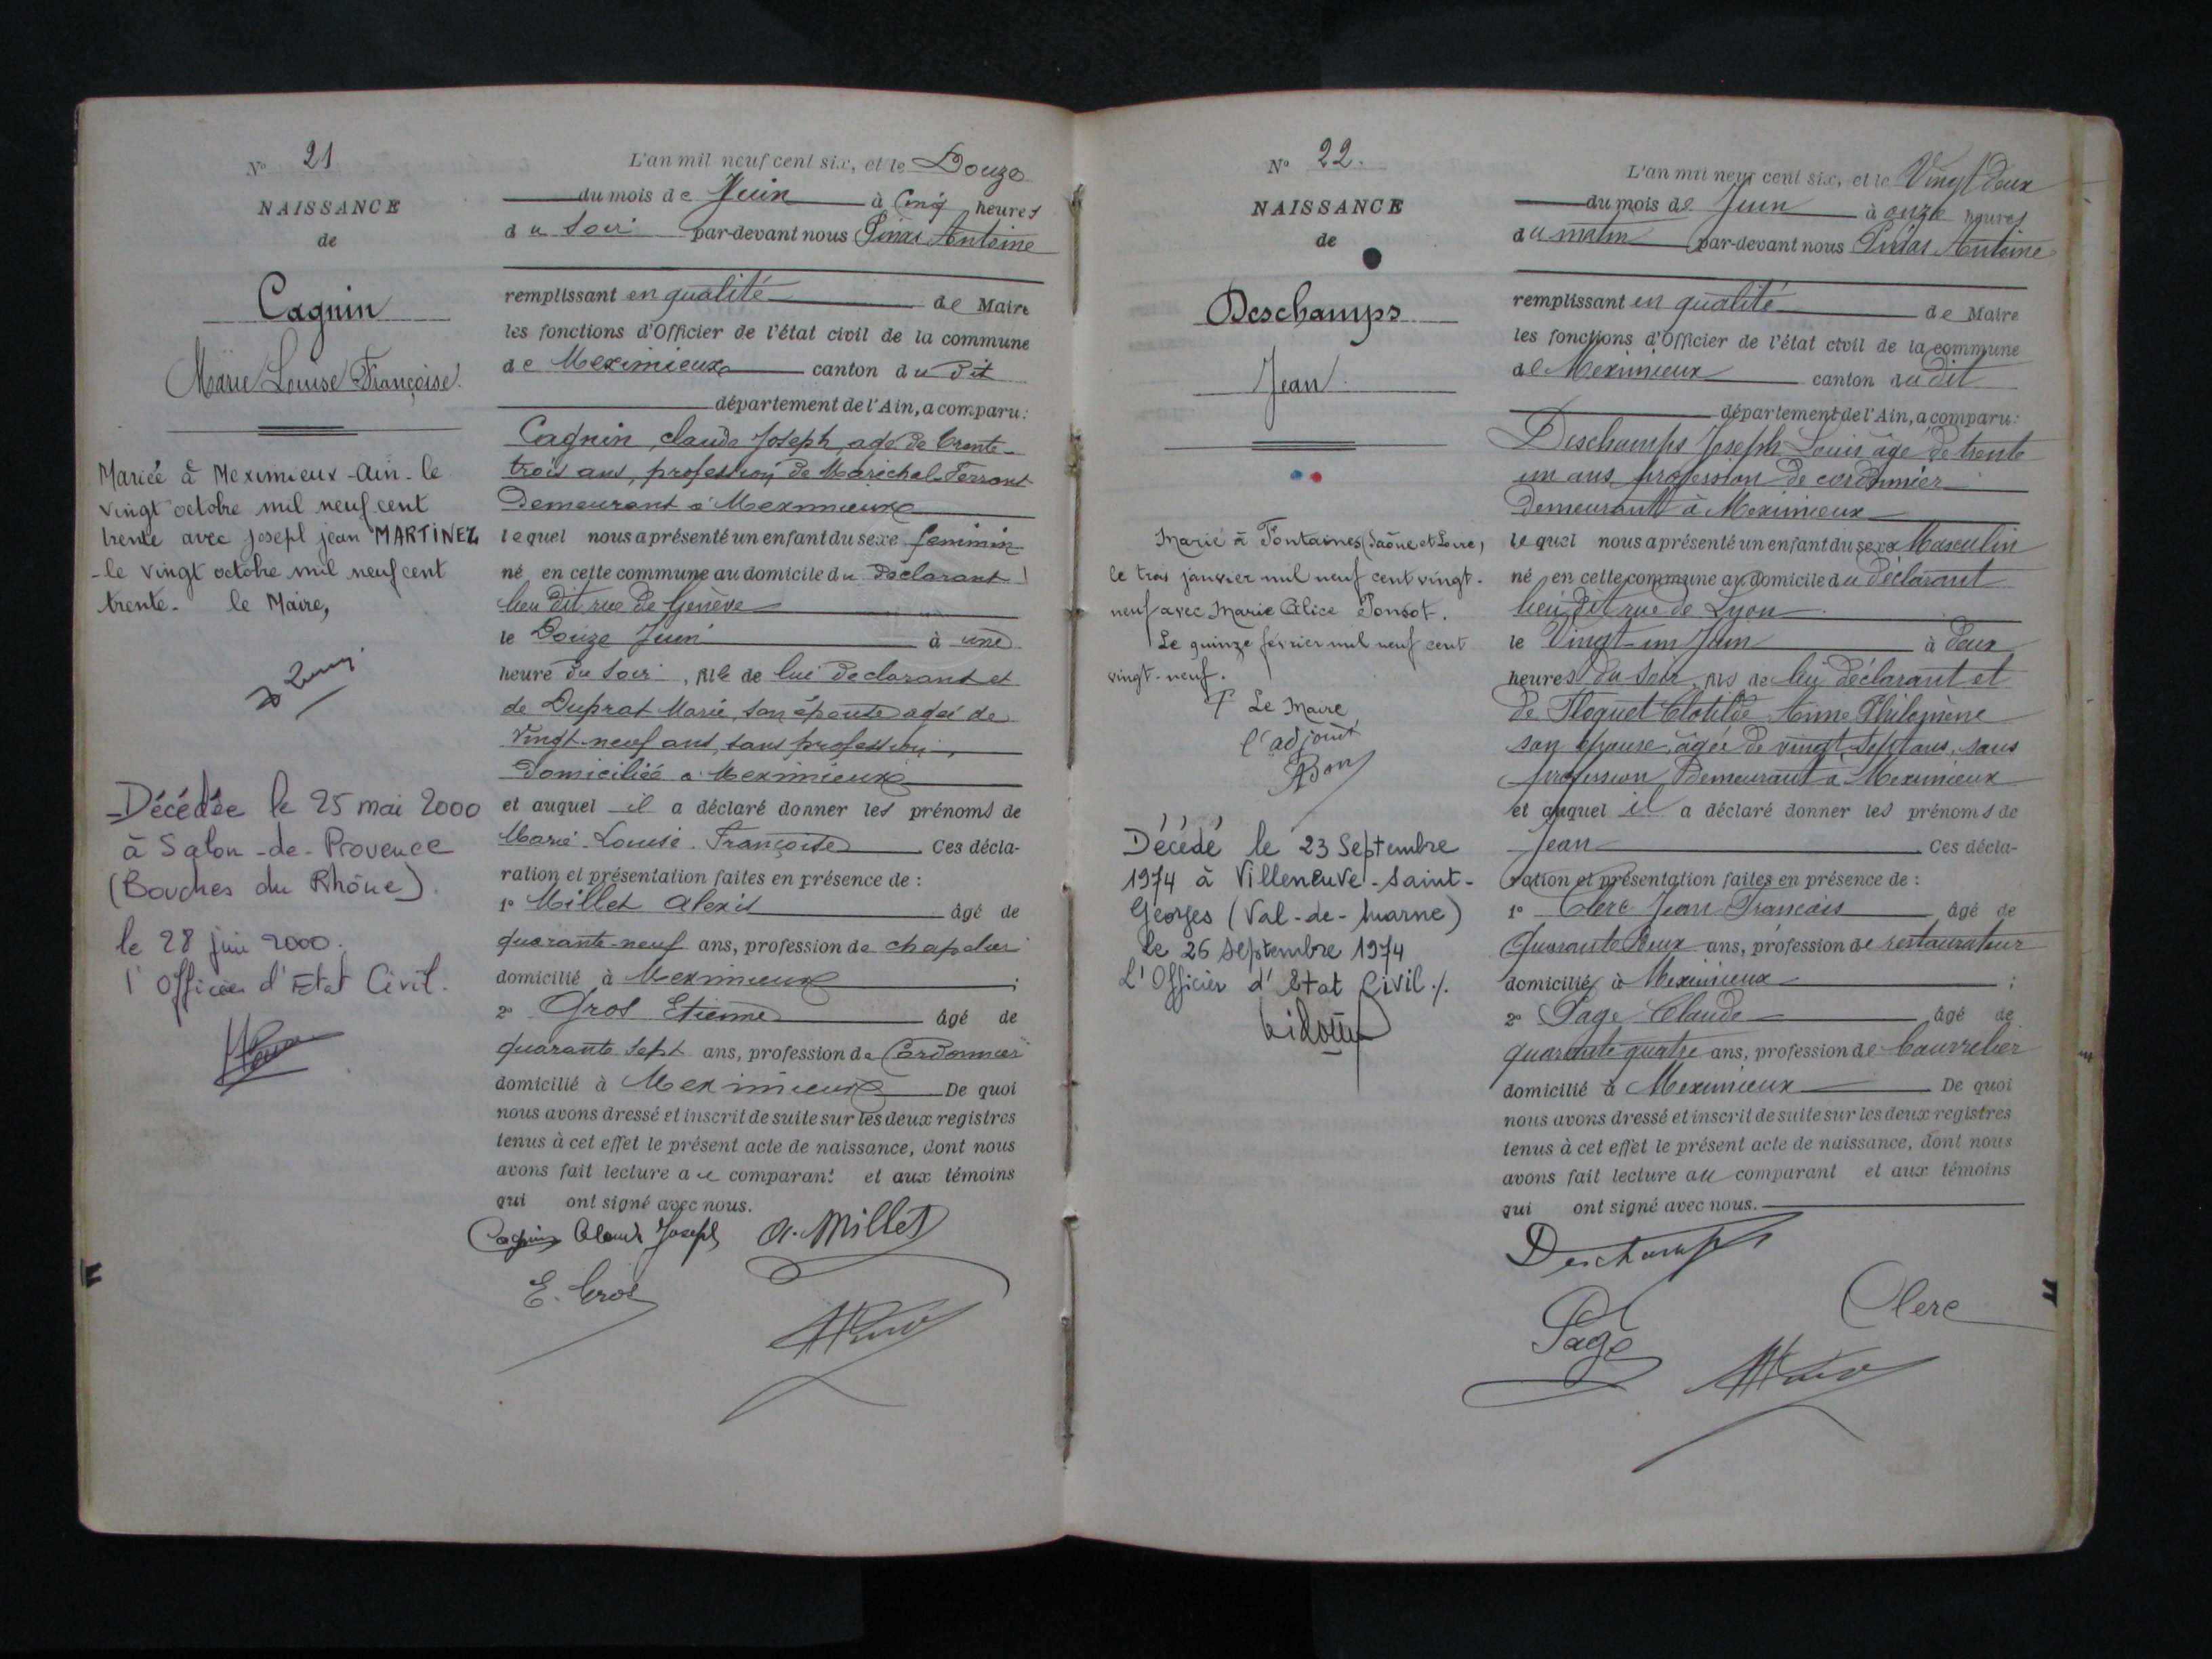 N° 21
NAISSANCE
de
Cagnin
Marie Louise Françoise.
Mariée à Meximieux-Ain-le
vingt octobre mil neuf cent
trente avec Joseph jean MARTINEZ
-le vingt octobre mil neuf cent
trente. le Maire,
-Décédée le 25 mai 2000
à Salon-de-Provence
(Bouches du Rhône).
le 28 juin 2000.
l'Officier d'Etat Civil.
L'an mil neuf cent six, et le Douze
du mois de Juin à Cinq heures
du soir par-devant nous Antoine
remplissant en qualité de Maire
les fonctions d'Officier de l'état civil de la commune
de Meximieux canton du dit
département de l'Ain, a comparu:
Cagnin, claude Joseph, agé de trente-
trois ans, profession de Maréchal-Ferrant
Demeurant à Meximieux
lequel nous a présenté un enfant du sexe feminin
né en cette commune au domicile du Déclarant
lieu dit rue de Genève
le Douze Juin à une
heure du Soir, fille de lui Declarant et
de Duprat Marie, son épouse agée de
vingt-neuf ans, sans profession,
domiciliée à Meximieux
et auquel il a déclaré donner les prénoms de
Marie Louise Françoise Ces décla-
ration et présentation faites en présence de :
1° Millet Alexis âgé de
quarante-neuf ans, profession de chapelier
domicilié à Meximieux ;
2° Gros Etienne âgé de
quarante sept ans, profession de Cordonnier
domicilié à Meximieux De quoi
nous avons dressé et inscrit de suite sur les deux registres
tenus à cet effet le présent acte de naissance, dont nous
avons fait lecture au comparant et aux témoins
qui ont signé avec nous.
Cagnin Claude Joseph A. Millet
E. Gros
N° 22.
NAISSANCE
de
Deschamps
Jean
Marié à Fontaines (Saône et Loire),
le trois janvier mil neuf cent vingt-
neuf avec Marie Alice Ponsot.
Le quinze février mil neuf cent
vingt-neuf.
Pr Le Maire
l'adjoint
Décédé le 23 Septembre
1974 à Villeneuve-Saint-
Georges (Val-de-Marne)
Le 26 septembre 1974
L'Officier d'Etat Civil ./.
L'an mil neuf cent six, et le Vingt deux
du mois de Juin à onze heures
du matin par-devant nous Antoine
remplissant en qualité de Maire
les fonctions d'Officier de l'état civil de la commune
de Meximieux canton du dit
département de l'Ain, a comparu:
Deschamps Joseph Louis âgé de trente
un ans profession de cordonnier
Demeurant à Meximieux
lequel nous a présenté un enfant du sexe Masculin
né en cette commune au domicile du Déclarant
lieu dit rue de Lyon
le Vingt-un Juin à deux
heures du Soir, fils de lui déclarant et
de Floquet Clotilde Anne Philomène
son épouse, âgée de vingt sept ans, sans
profession Demeurant à Meximieux
et auquel il a déclaré donner les prénoms de
Jean Ces décla-
ration et présentation faites en présence de :
1° Clerc Jean François âgé de
Quarante Deux ans, profession de restaurateur
domicilié à Meximieux ;
2° Page Claude âgé de
quarante quatre ans, profession de bourrelier
domicilié à Meximieux De quoi
nous avons dressé et inscrit de suite sur les deux registres
tenus à cet effet le présent acte de naissance, dont nous
avons fait lecture au comparant et aux témoins
qui ont signé avec nous.
Deschamps
Clerc
Page